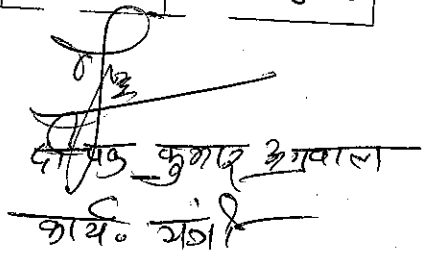 दीपक कुमार अग्रवाल
कार्य. यंत्री